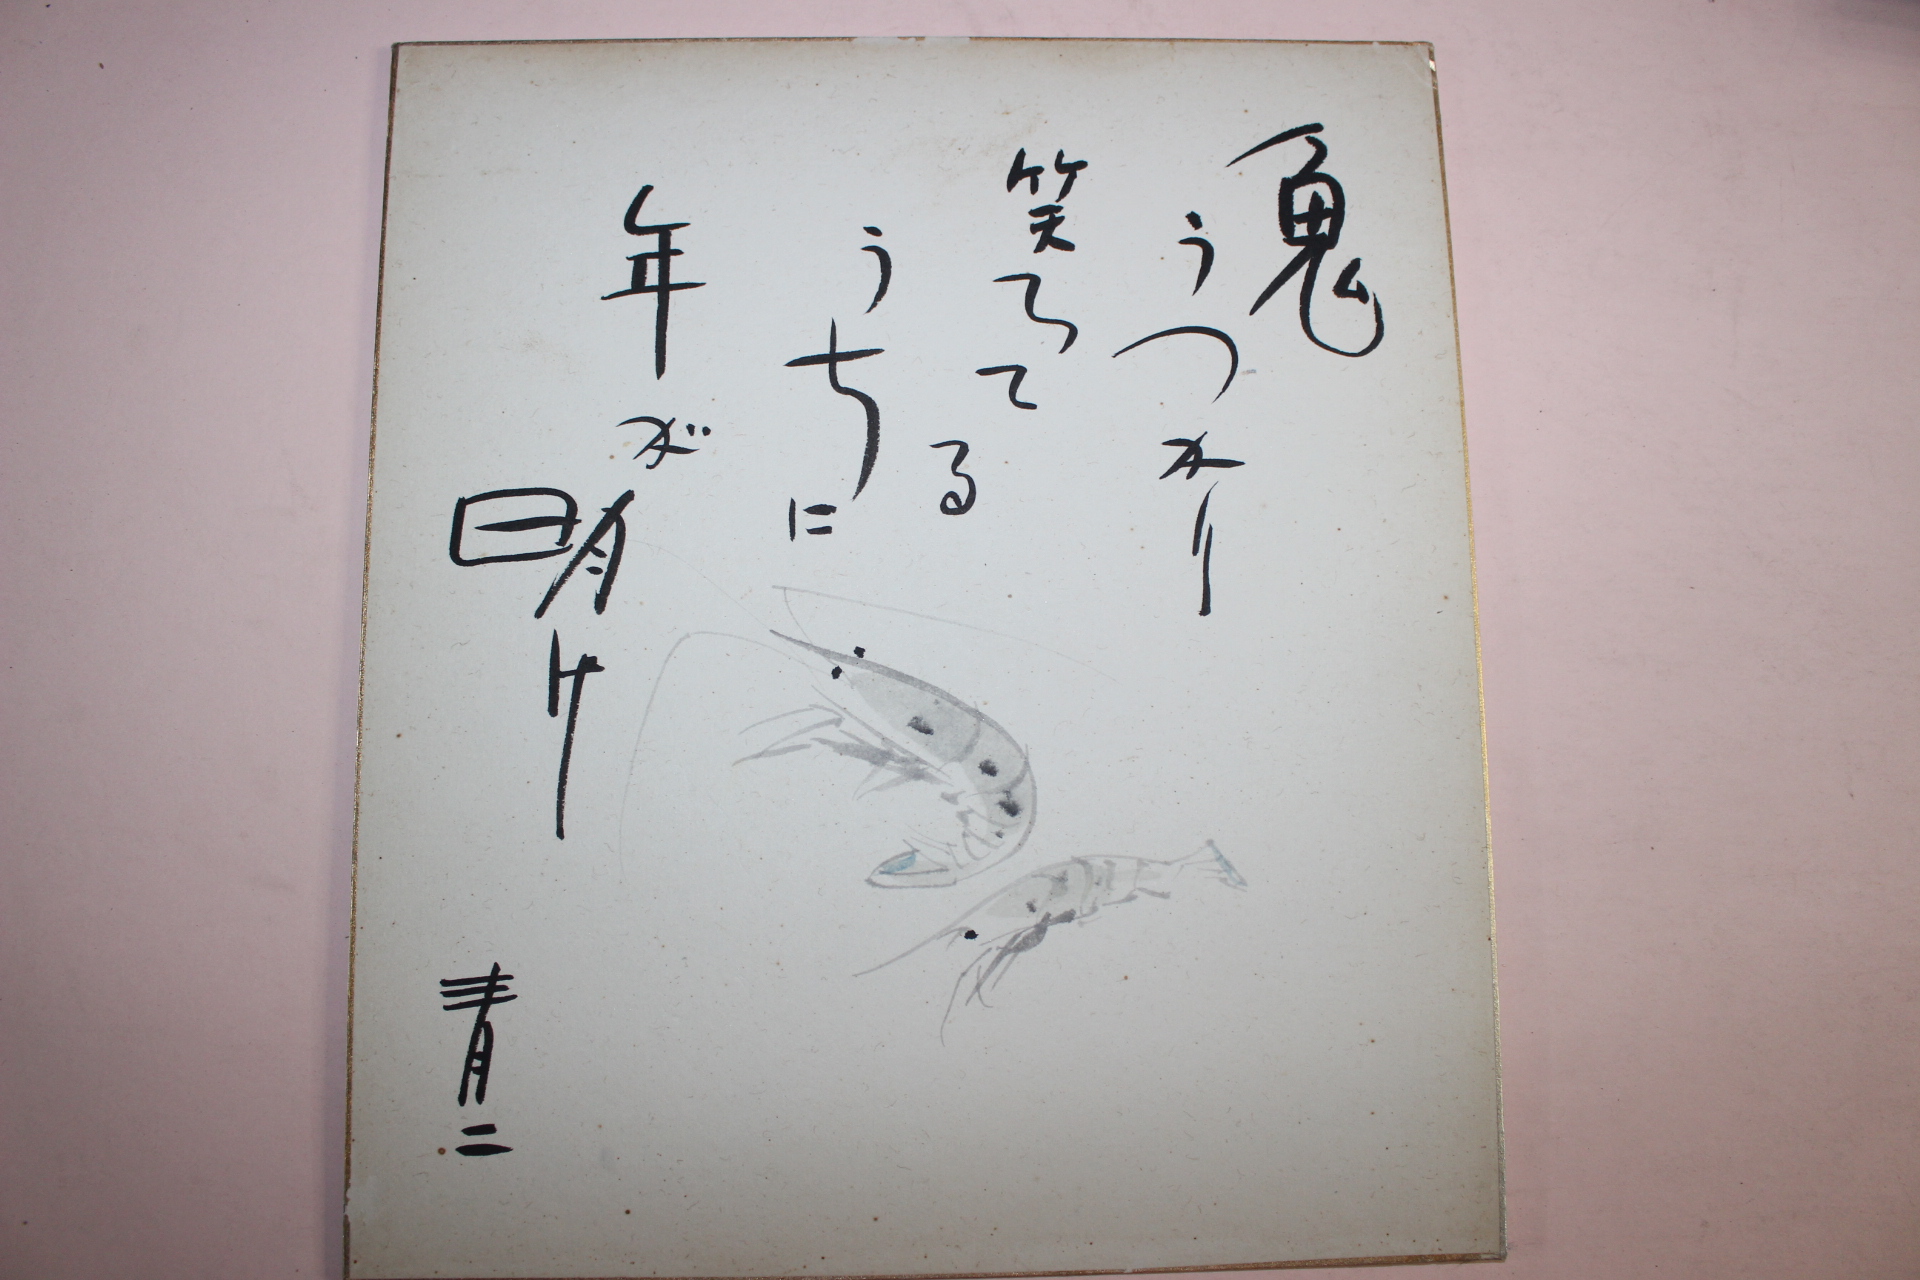 鬼
うつかり
笑つてる
うちに
年が明け
青二